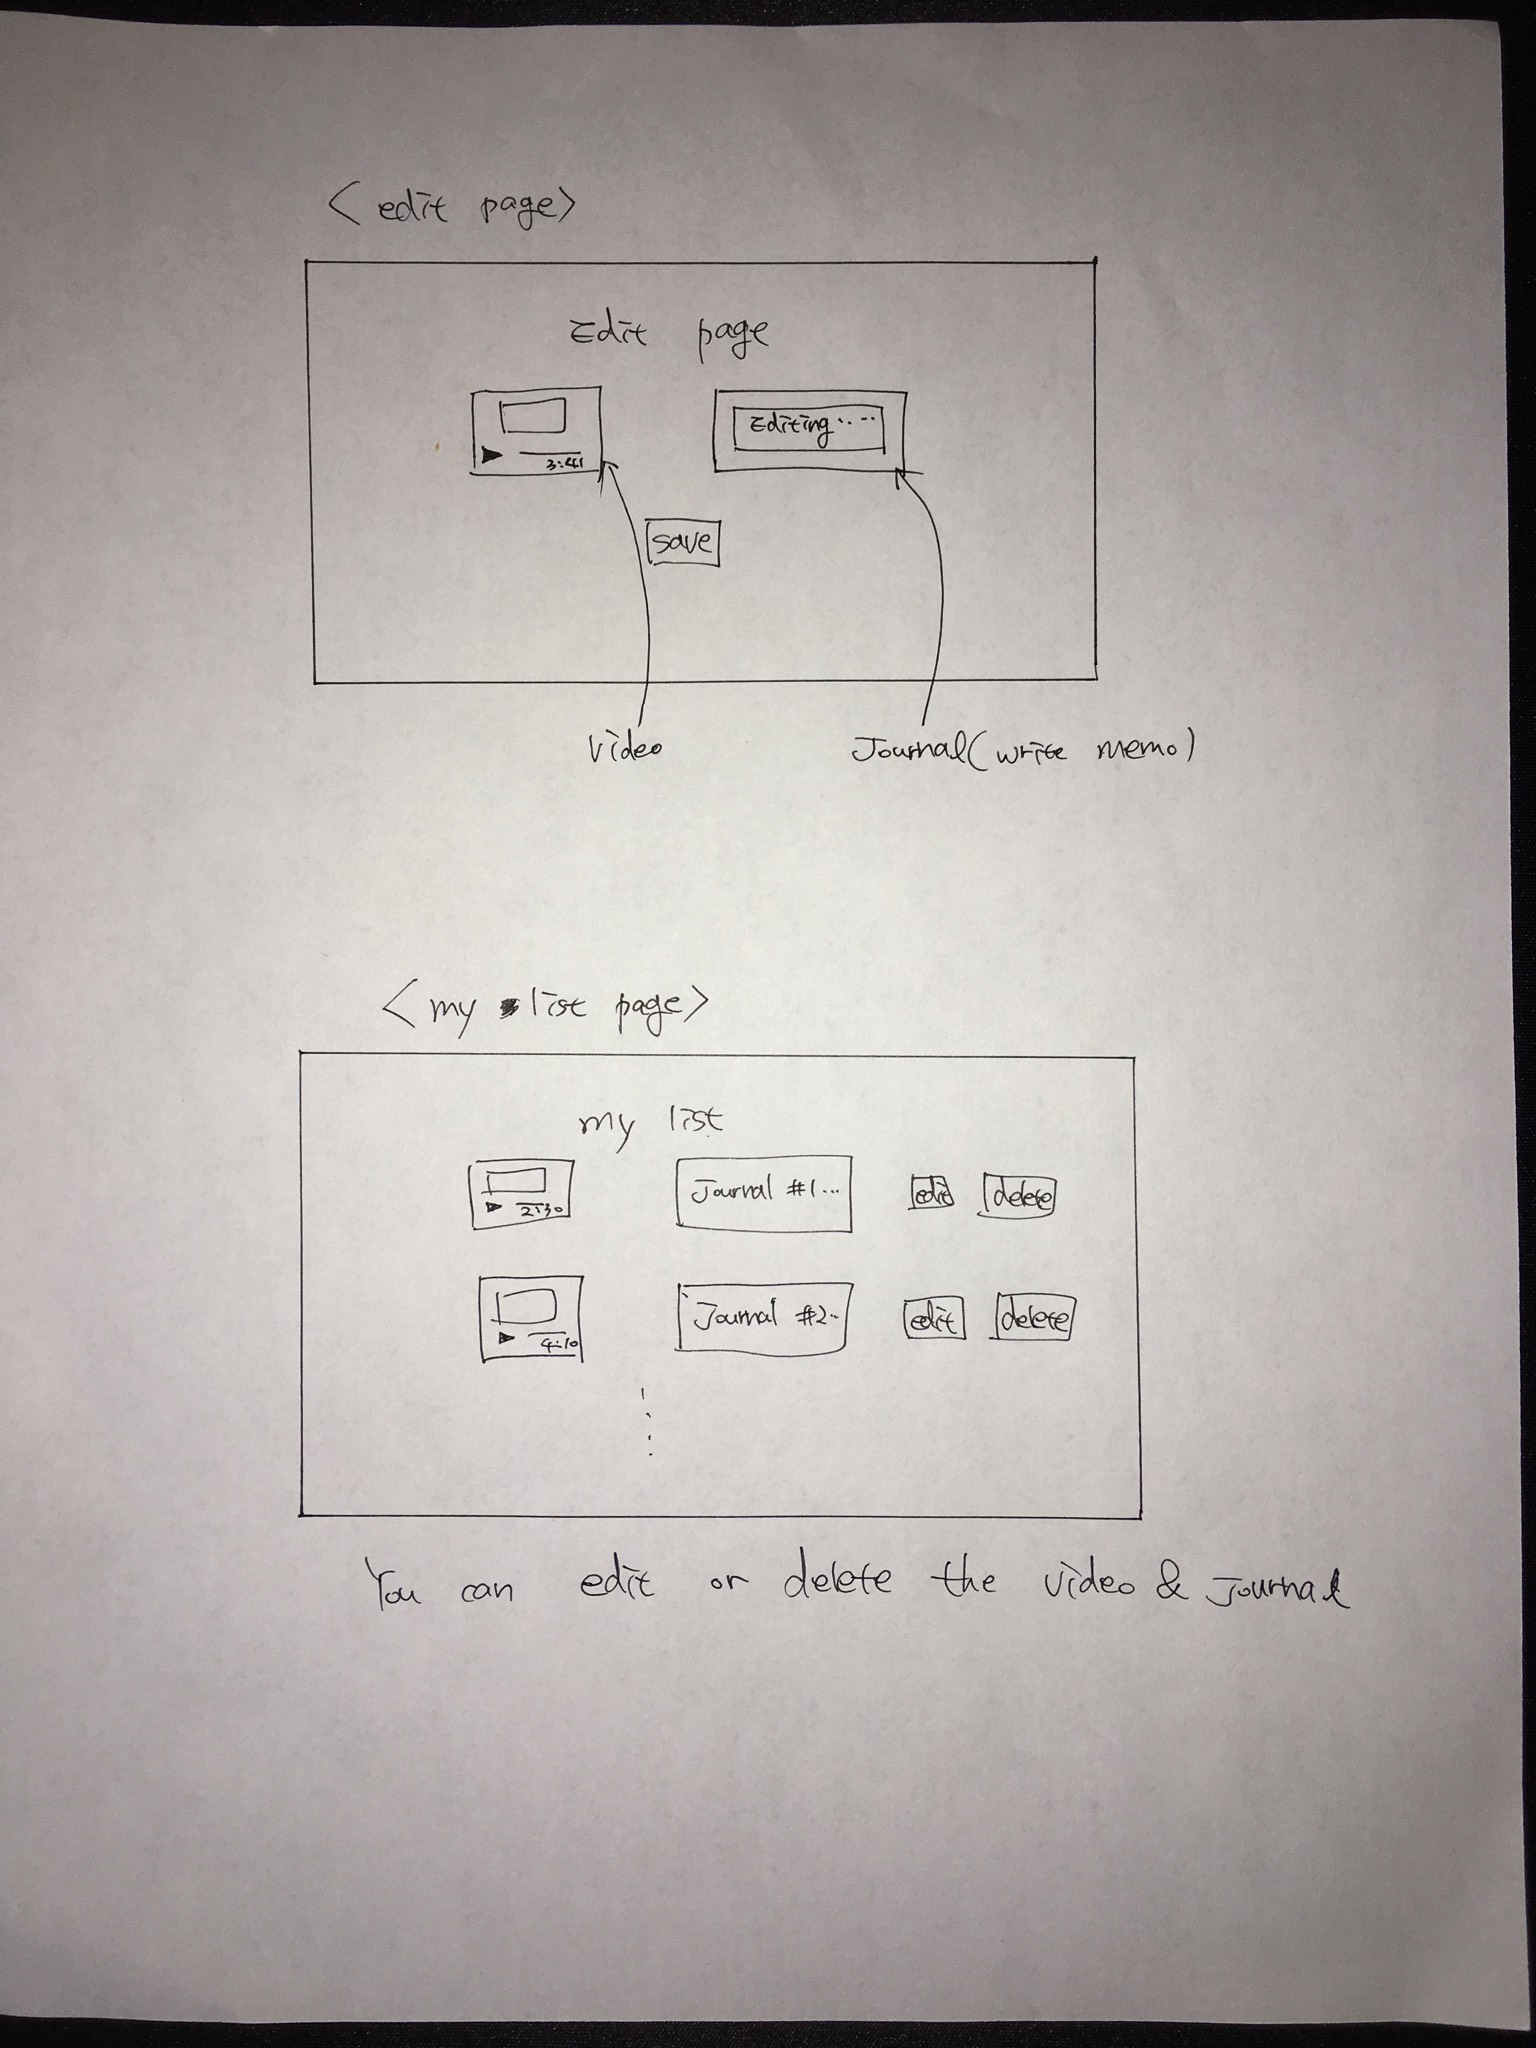 < edit page>
Edit page
Editing.....
3:41
save
video
Journal(write memo)
< my list page>
my list
Journal #1...
edit
delete
2:30
Journal #2..
edit
delete
4:10
You can edit or delete the video & Journal